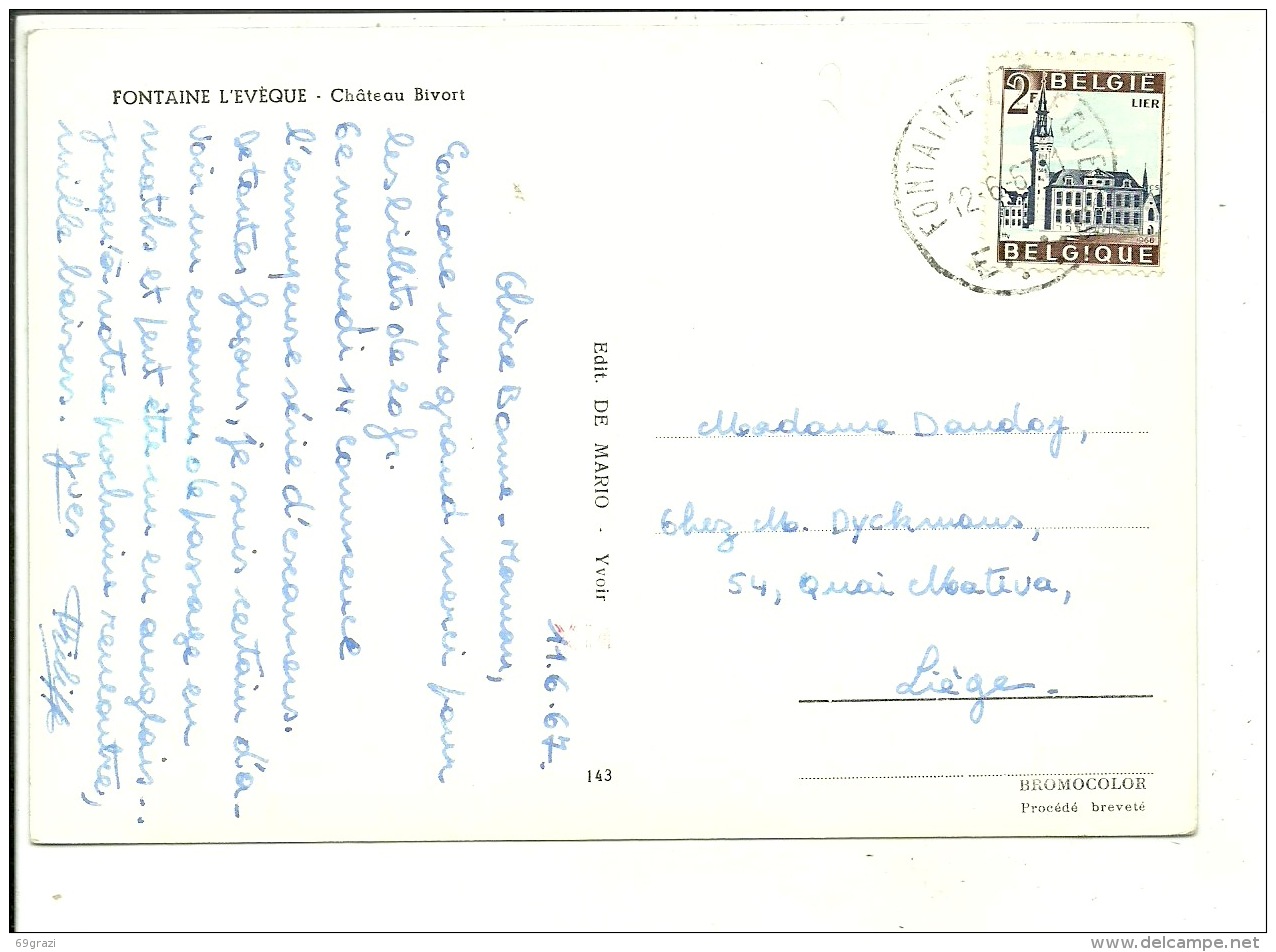 FONTAINE L'EVÈQUE - Château Bivort
11.6.67.
Chère Bonne-Maman,
Encore un grand merci pour
les billets de 20 fr.
Ce mercredi 14 commence
l'ennuyeuse série d'examens.
De toutes façons, je suis certain d'a-
voir un examen de passage en
maths et peut être un en anglais...
jusqu'à notre prochaine rencontre,
mille baisers. Yves
Philippe
Edit. DE MARIO - Yvoir
143
2F BELGIË
LIER
1966
BELGIQUE
FONTAINE
12-6-67
Madame Dandoy,
Chez M. Dyckmans,
54, Quai Mativa,
Liège.
BROMOCOLOR
Procédé breveté
69grazi
delcampe.net